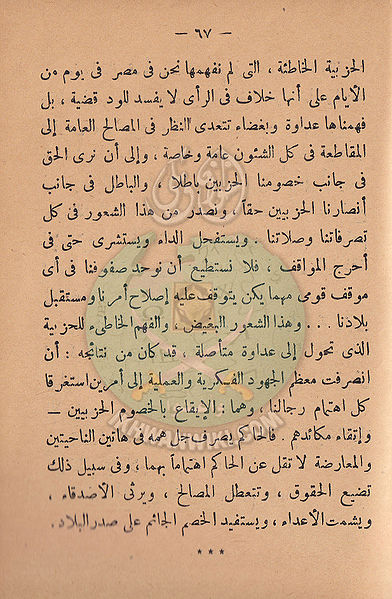 — ٦٧ —
الحزبية الخاطئة ، التى لم نفهمها نحن فى مصر فى يوم من
الأيام على أنها خلاف فى الرأى لا يفسد للود قضية ، بل
فهمناها عداوة وبغضاء تتعدى النظر فى المصالح العامة إلى
المقاطعة فى كل الشئون عامة وخاصة ، وإلى أن نرى الحق
فى جانب خصومنا الحزبيين باطلا ، والباطل فى جانب
أنصارنا الحزبيين حقاً ، ونصدر عن هذا الشعور فى كل
تصرفاتنا وصلاتنا . ويستفحل الداء ويستشرى حتى فى
أحرج المواقف ، فلا نستطيع أن نوحد صفوفنا فى أى
موقف قومى مهما يكن يتوقف عليه إصلاح أمرنا ومستقبل
بلادنا . . . وهذا الشعور البغيض ، والفهم الخاطىء للحزبية
الذى تحول إلى عداوة متأصلة ، قد كان من نتائجه : أن
انصرفت معظم الجهود الفكرية والعملية إلى أمرين استغرقا
كل اهتمام رجالنا ، وهما : الإيقاع بالخصوم الحزبيين —
وإتقاء مكائدهم . فالحاكم يصرف جل همه فى هاتين الناحيتين
والمعارضة لا تقل عن الحاكم اهتماماً بهما ، وفى سبيل ذلك
تضيع الحقوق ، وتتعطل المصالح ، ويرثى الأصدقاء ،
ويشمت الأعداء ، ويستفيد الخصم الجاثم على صدر البلاد .
* * *